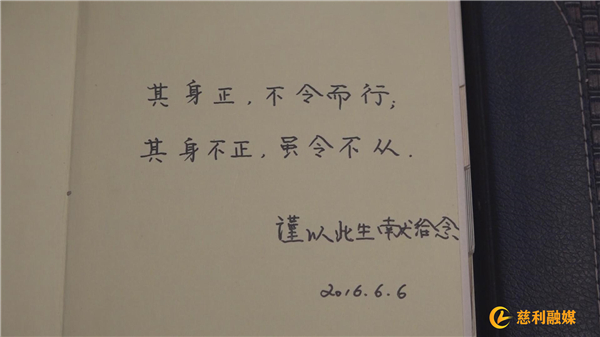 其身正,不令而行;
其身不正,虽令不从.
谨以此生献给念
2016.6.6
慈利融媒